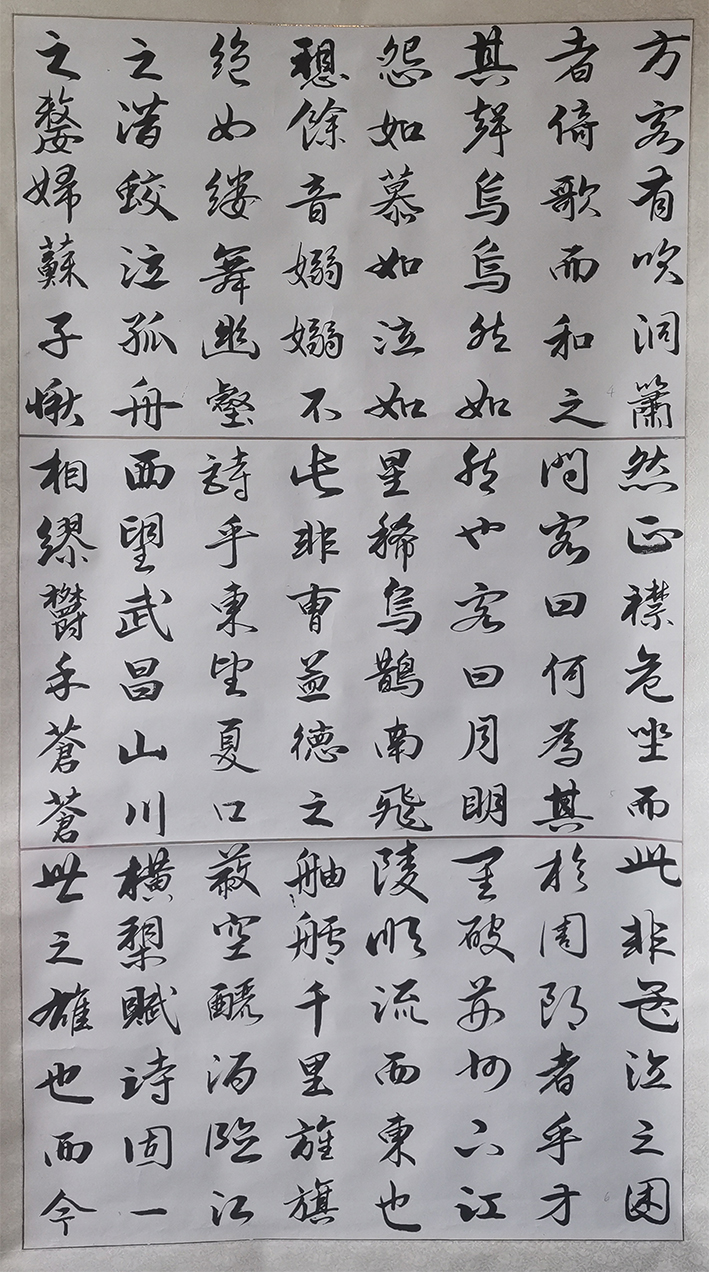 方客有吹洞簫
者倚歌而和之
其聲烏烏然如
怨如慕如泣如
愬餘音嫋嫋不
絕如縷舞幽壑
之潛蛟泣孤舟
之嫠婦蘇子愀
然正襟危坐而
問客曰何為其
然也客曰月明
星稀烏鵲南飛
此非曹孟德之
詩乎東望夏口
西望武昌山川
相繆鬱乎蒼蒼
此非孟德之困
於周郎者乎方
其破荊州下江
陵順流而東也
舳艫千里旌旗
蔽空釃酒臨江
橫槊賦詩固一
世之雄也而今